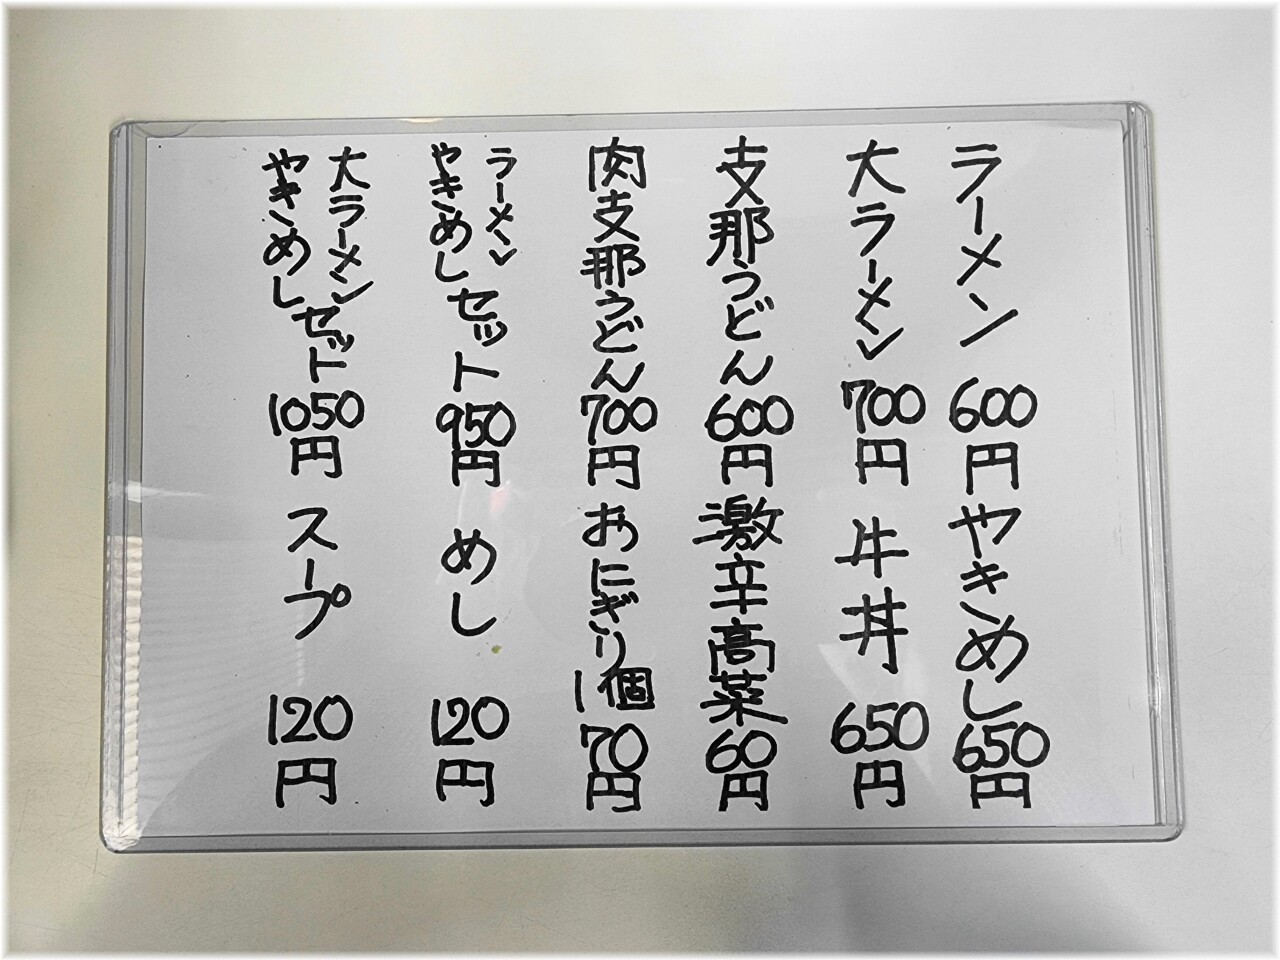 ラーメン 600円
大ラーメン 700円
支那うどん 600円
肉支那うどん 700円
ラーメン
やきめしセット 950円
大ラーメン
やきめしセット 1050円
やきめし 650円
牛丼 650円
激辛高菜 60円
おにぎり1個 70円
めし 120円
スープ 120円